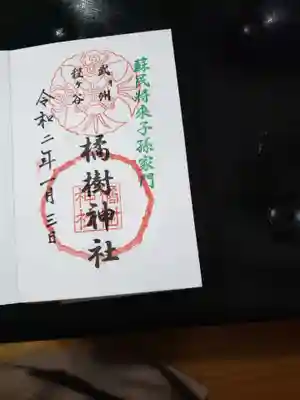 蘇民将来子孫家門
武州
程ヶ谷
橘樹神社
令和二年一月三日